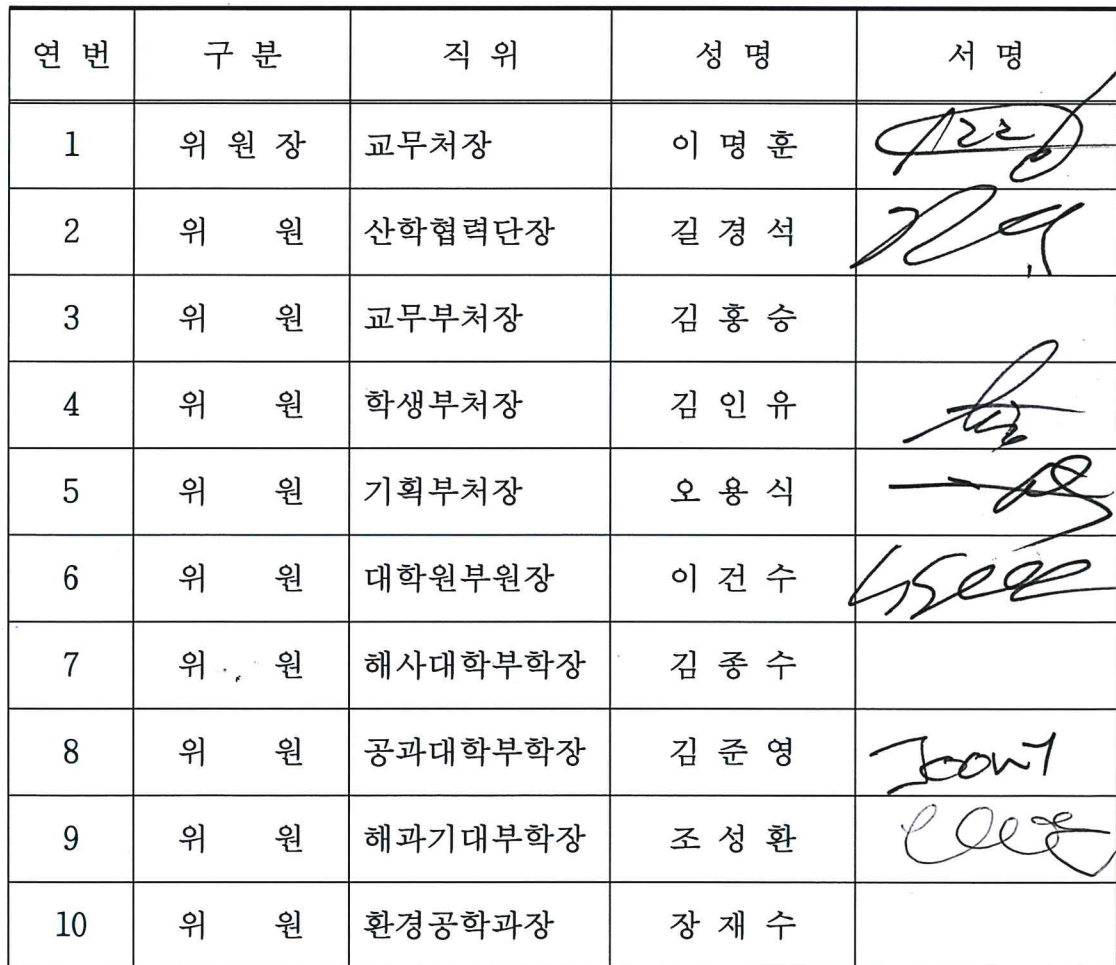 연 번 구 분 직 위 성 명 서 명
1 위 원 장 교무처장 이 명 훈
2 위 원 산학협력단장 길 경 석
3 위 원 교무부처장 김 홍 승
4 위 원 학생부처장 김 인 유
5 위 원 기획부처장 오 용 식
6 위 원 대학원부원장 이 건 수
7 위 원 해사대학부학장 김 종 수
8 위 원 공과대학부학장 김 준 영
9 위 원 해과기대부학장 조 성 환
10 위 원 환경공학과장 장 재 수